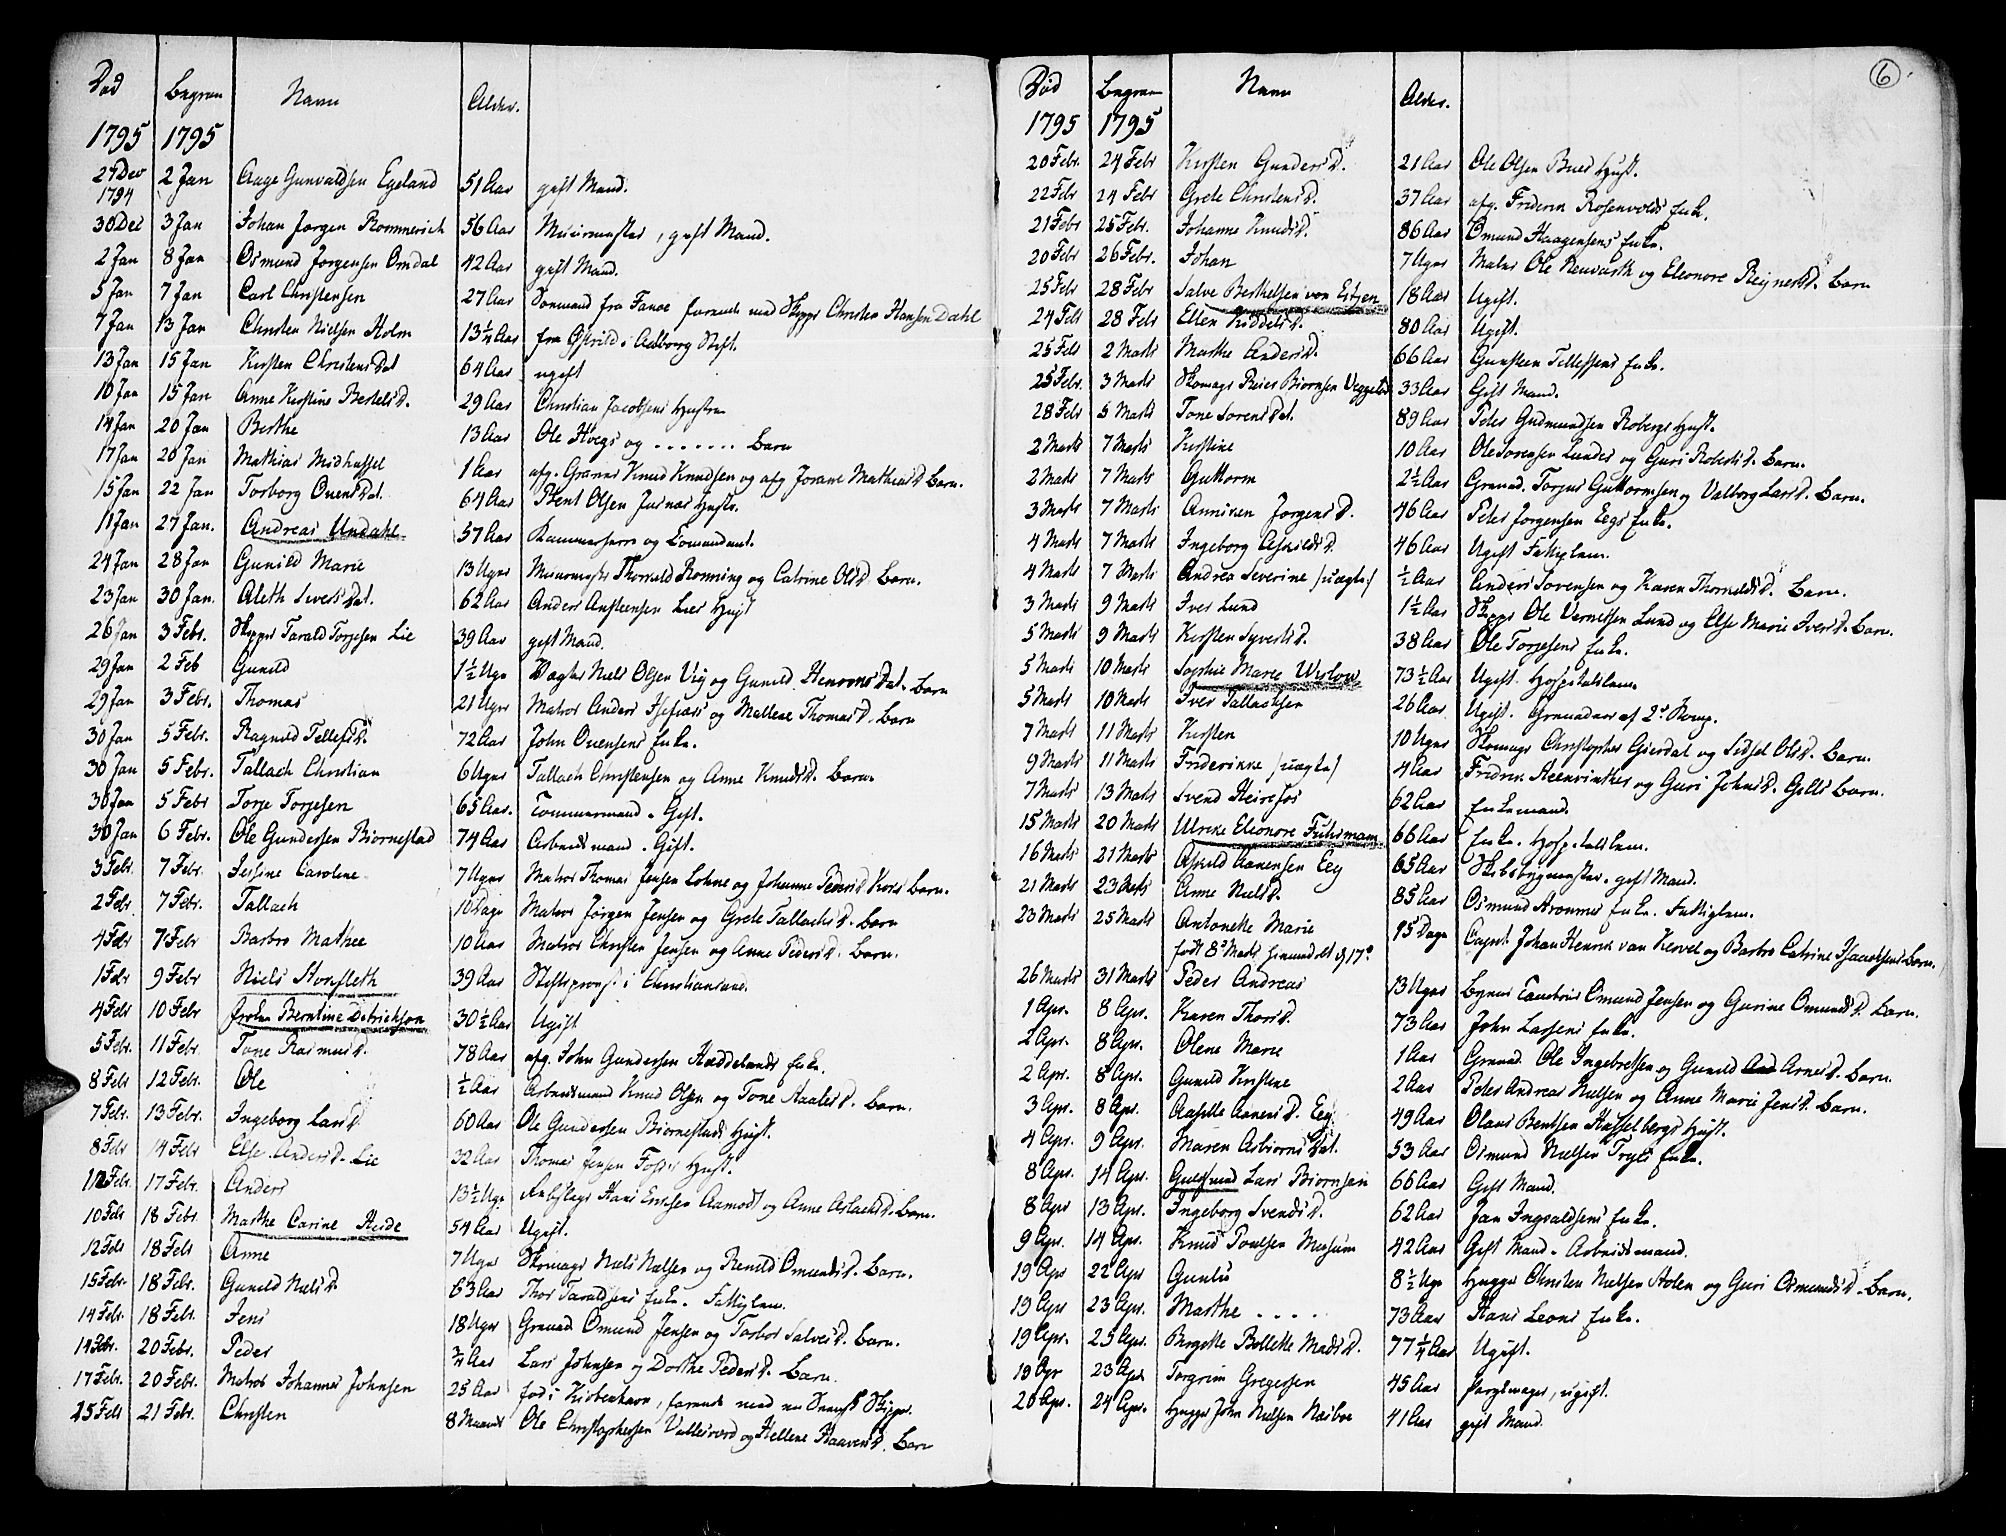 Død Begrav Navn Alder.
1795 1795
27 Dec 1794 2 Jan Aage Gunvaldsen Egeland 51 Aar gift Mand.
30 Dec 3 Jan Johan Jørgen Rommerich 56 Aar Muurmester, gift Mand.
2 Jan 8 Jan Osmund Jørgensen Omdal 42 Aar gift Mand.
5 Jan 7 Jan Carl Christensen 27 Aar Sømand fra Fanøe farende med Skippr Christen Hansen Dahl
7 Jan 13 Jan Christen Nielsen Holm 13 1/4 Aar fra Østrild i Aalborg Stift.
13 Jan 15 Jan Kirsten Christens Dat 64 Aar ugift
10 Jan 15 Jan Anne Kirstine Bertels D. 29 Aar Christian Jacobsens Hustru
14 Jan 20 Jan Berthe 13 Aar Ole Høegs og ....... Barn
17 Jan 20 Jan Mathias Midhassel 1 Aar afg. Knud Knudsen og afg Jorane Mathias D. Barn.
15 Jan 22 Jan Torborg Ouens Dat. 64 Aar Bent Olsen Hustr.
11 Jan 27 Jan. Andreas Undahl 57 Aar Kammerherre og Comandant.
24 Jan 28 Jan Gunild Marie 13 Uger Muurmester Thorruld Rønning og Catrine Ols D. Barn.
23 Jan 30 Jan. Aleth Sivers Dat. 62 Aar Anders Anstensen Lies Hust
26 Jan 3 Febr. Skipper Tarald Torjesen Lie 39 Aar gift Mand.
29 Jan 2 Feb Gunild 1 1/2 Uge Vægter Niels Olsen Vig og Gunild Dat. Barn
29 Jan 3 Febr. Thomas 21 Uger Matros Anders og Mallene Thomas D. Barn
30 Jan 5 Febr. Ragnild Tellefs D. 72 Aar John Ouensens Enke.
30 Jan 5 Febr. Tallach Christian 6 Uger Tallach Christensen og Anne Knuds D. Barn.
30 Jan 5 Febr Torje Torjesen 65 Aar. Tømmermand. Gift.
30 Jan 6 Febr. Ole Gundersen Biørnestad 74 Aar Arbeidsmand. Gift.
3 Febr. 7 Febr. Jessine Caroline 7 Uger Matros Thomas Jensen Lohne og Johanne Peders D. Barn.
2 Febr 7 Febr. Tallach 10 Dage Matros Jørgen Jensen og Grete Tallachs D. Barn
4 Febr 7 Febr Barbro Mathea 10 Aar Matros Christen Jensen og Anne Peders D. Barn.
1 Febr 9 Febr Niels Stoifleth 39 Aar Stiftsprovst i Christiansand.
4 Febr 10 Febr Frøken Berntine Detrickson 30 1/2 Aar Ugift
5 Febr. 11 Febr. Tone Rasmus D. 78 Aar afg. John Gundersen Hæddelands Enke.
8 Febr 12 Febr. Ole 1/2 Aar Arbeidsmand Knud Olsen og Tone D. Barn.
7 Febr. 13 Febr. Ingeborg Lars D 60 Aar Ole Gundersen Biørnestads Hust.
8 Febr 14 Febr Else Anders D. Lie 32 Aar Thomas Jensen Hust.
12 Febr. 17 Febr. Anders 13 1/2 Uge Hans Ericsen Aamodt og Anne Aslachs D. Barn.
10 Febr 18 Febr. Marthe Carine Heide 54 Aar Ugift.
12 Febr 18 Febr Anne 7 Uger Skomager Niels Nielsen og Renild Omunds D. Barn.
15 Febr 18 Febr. Gunild Niels D 63 Aar Thor Taraldsens Enke. Fattiglem.
14 Febr. 18 Febr. Jens 18 Uger Granad Omund Jensen og Torbor Salves D. Barn.
14 Febr. 20 Febr. Peder 3/4 Aar Lars Johnsen og Dorthe Peders D. Barn.
17 Febr. 20 Febr. Matros Johannes Johnsen 25 Aar fød i Kiøbenhavn, farende med en Skipper
15 Febr 21 Febr. Christen 8 Maaned Ole Christophersen Vallesværd og Hellene D. Barn
6
Død Begrav Navn Alder.
1795 1795
20 Febr. 24 Febr Kirsten Gunders D. 21 Aar Ole Olsen Hust.
22 Febr 24 Febr Grete Christens D. 37 Aar afg. Friderik Rosenvolds Enke.
21 Febr 25 Febr. Johanne Knuds D. 86 Aar Omund Haagensens Enke.
20 Febr 26 Febr. Johan 7 Uger Maler Ole og Eleonore D. Barn
25 Febr 28 Febr Salve Berthelsen von Eitzen 18 Aar Ugift.
24 Febr 28 Febr Ellen Kiddels D. 80 Aar Ugift.
25 Febr 2 Marts Marthe Anders D. 66 Aar Gunsten Tellefsens Enke.
25 Febr. 3 Marts Skomagr Reier Biørnsen 33 Aar Gift Mand.
28 Febr 5 Marts Tone Sørens Dat. 89 Aar Peter Gudmundsen Robergs Hust.
2 Marts 7 Marts Kirstine 10 Aar Ole Sørensen Lunder og Guri Roberts D. Barn.
2 Marts 7 Marts Guttorm 2 1/2 Aar Granad. Torjus Guttormsen og Valborg Lars D. Barn.
3 Marts 7 Marts Anniken Jørgens D. 46 Aar Peter Jørgensen Eegs Enke.
4 Marts 7 Marts Ingeborg Askilds D. 46 Aar Ugift Fattiglem.
4 Marts 7 Marts Andrea Severine (uægte) 1/2 Aar Anders Sørensen og Karen D. Barn.
3 Marts 9 Marts Iver Lund 1 1/2 Aar Skippr Ole Lund og Else Marie Ivers D. Barn.
5 Marts 9 Marts Kirsten Syverts D. 38 Aar Ole Torjesens Enke.
5 Marts 10 Marts Sophie Marie 73 1/2 Aar Ugift Hospitalslem.
5 Marts 10 Marts Iver Tallachsen 26 Aar Ugift. Granadeer af 2d Komp.
7 Marts 11 Marts Kirsten 10 Uger Skomagr Christopher Gierdal og Sidsel Ols D. Barn.
9 Marts 11 Marts Friderikke (uægte) 4 Aar Fridrik og Guri Johns D. Barn.
7 Marts 13 Marts Svend Reiersøs 62 Aar Enkemand.
15 Marts 20 Marts Ulrike Eleonore Führmann 66 Aar Enke. Hospitalslem.
16 Marts 21 Marts Askild Aanensen Eeg 65 Aar Skibsbygmester. gift Mand.
21 Marts 23 Marts Anne Niels D. 85 Aar Osmund Enke. Fattiglem.
23 Marts 25 Marts Antonette Marie 15 Dage Capt. Johan Henrik van Kervel og Barbro Catrine Barn.
født 8de Marts hiemmedøbt d 17de
26 Marts 31 Marts Peder Andreas 13 Uger Omund Jensen og Gurine Omunds D. Barn.
1 Apr. 8 Apr. Karen Thors D. 73 Aar John Larsens Enke.
2 Apr. 8 Apr. Olene Marie 1 Aar Granad. Ole Ingebretsen og Gunild Arnes D. Barn.
2 Apr. 8 Apr. Gunild Kirstine 2 Aar Peter Andreas Nielsen og Anne Marie Jens D. Barn.
3 Apr. 8 Apr. Aaselle Aanens D. Eeg 49 Aar Olaus Bentsen Hasselbergs Hust.
4 Apr. 9 Apr. Maren Asbiørns Dat. 53 Aar Osmund Nielsen Enke.
8 Apr. 14 Apr. Guldsmed Lars Biørnsen 66 Aar Gift Mand.
8 Apr 13 Apr. Ingeborg Svends D. 62 Aar Jan Ingvaldsens Enke.
9 Apr. 14 Apr. Knud Poulsen 42 Aar Gift Mand. Arbeidsmand.
19 Apr 22 Apr Gunild 8 1/2 Uge Christen Nielsen Holen og Guri Osmunds D. Barn.
19 Apr 23 Apr. Marthe ..... 73 Aar Hans Leons Enke.
19 Apr. 25 Apr. Birgitte Bollette Mads D. 77 1/4 Aar Ugift.
19 Apr 23 Apr. Torgrim Gregersen 45 Aar ugift.
20 Apr. 24 Apr. John Nielsen 41 Aar gift Mand